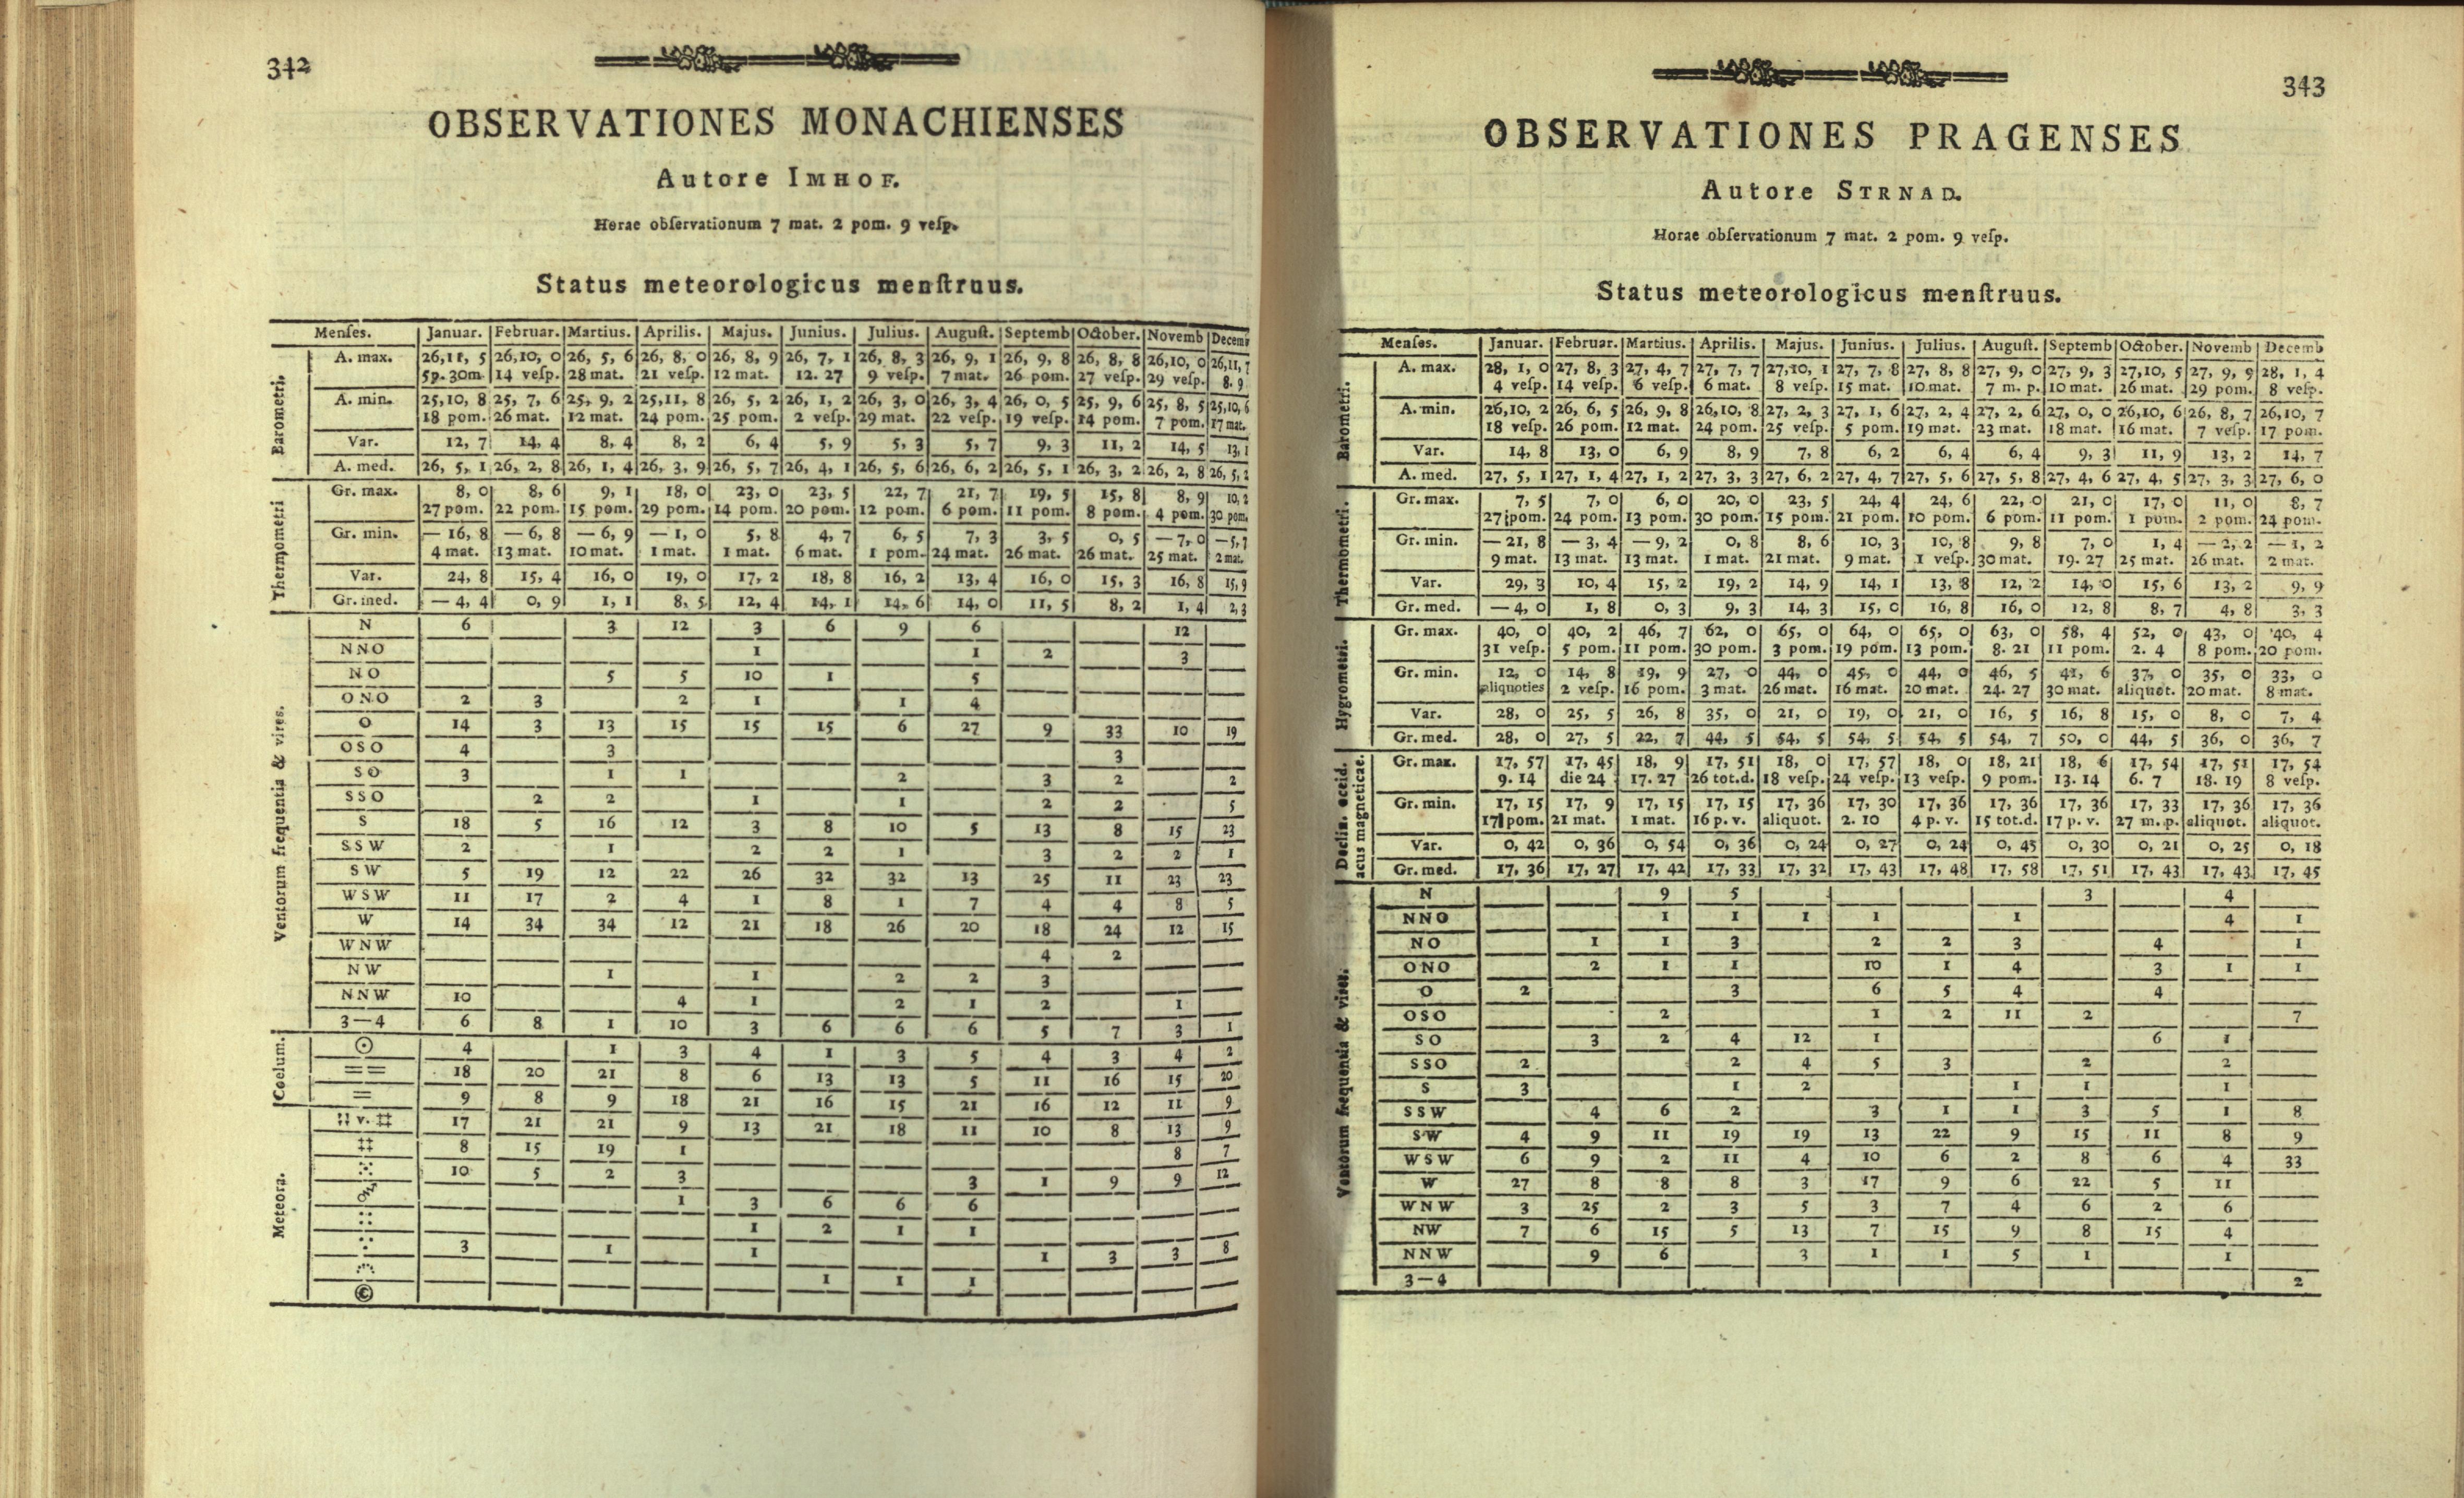 342
OBSERVATIONES MONACHIENSES
Autore IMHOF.
Horae obſervationum 7 mat. 2 pom. 9 veſp.
Status meteorologicus menſtruus.
Menſes. Januar. Februar. Martius. Aprilis. Majus. Junius. Julius. Auguſt. Septemb October. Novemb Decemb
Barometri.
A. max. 26,11, 5 26,10, 0 26, 5, 6 26, 8, 0 26, 8, 9 26, 7, 1 26, 8, 3 26, 9, 1 26, 9, 8 26, 8, 8 26,10, 0 26,11, 7
5p. 30m. 14 veſp. 28 mat. 21 veſp. 12 mat. 12. 27 9 veſp. 7 mat. 26 pom. 27 veſp. 29 veſp. 8. 9
A. min. 25,10, 8 25, 7, 6 25, 9, 2 25,11, 8 26, 5, 2 26, 1, 2 26, 3, 0 26, 3, 4 26, 0, 5 25, 9, 6 25, 8, 5 25,10, 6
18 pom. 26 mat. 12 mat. 24 pom. 25 pom. 2 veſp. 29 mat. 22 veſp. 19 veſp. 14 pom. 7 pom. 17 mat.
Var. 12, 7 14, 4 8, 4 8, 2 6, 4 5, 9 5, 3 5, 7 9, 3 11, 2 14, 5 13, 1
A. med. 26, 5, 1 26, 2, 8 26, 1, 4 26, 3, 9 26, 5, 7 26, 4, 1 26, 5, 6 26, 6, 2 26, 5, 1 26, 3, 2 26, 2, 8 26, 5, 2
Thermometri
Gr. max. 8, 0 8, 6 9, 1 18, 0 23, 0 23, 5 22, 7 21, 7 19, 5 15, 8 8, 9 10, 2
27 pom. 22 pom. 15 pom. 29 pom. 14 pom. 20 pom. 12 pom. 6 pom. 11 pom. 8 pom. 4 pom. 30 pom.
Gr. min. — 16, 8 — 6, 8 — 6, 9 — 1, 0 5, 8 4, 7 6, 5 7, 3 3, 5 0, 5 — 7, 0 — 5, 7
4 mat. 13 mat. 10 mat. 1 mat. 1 mat. 6 mat. 1 pom. 24 mat. 26 mat. 26 mat. 25 mat. 2 mat.
Var. 24, 8 15, 4 16, 0 19, 0 17, 2 18, 8 16, 2 13, 4 16, 0 15, 3 16, 8 15, 9
Gr. med. — 4, 4 0, 9 1, 1 8, 5 12, 4 14, 1 14, 6 14, 0 11, 5 8, 2 1, 4 2, 3
Ventorum frequentia & vires.
N 6 3 12 3 6 9 6 12
NNO 1 1 2 3
NO 5 5 10 1 5
ONO 2 3 2 1 1 4
O 14 3 13 15 15 15 6 27 9 33 10 19
OSO 4 3 3
SO 3 1 1 2 3 2 2
SSO 2 2 1 1 2 2 5
S 18 5 16 12 3 8 10 5 13 8 15 23
SSW 2 1 2 2 1 3 2 2 1
SW 5 19 12 22 26 32 32 13 25 11 23 23
WSW 11 17 2 4 1 8 1 7 4 4 8 5
W 14 34 34 12 21 18 26 20 18 24 12 15
WNW 4 2
NW 1 1 2 2 3
NNW 10 4 1 2 1 2 1
3—4 6 8 1 10 3 6 6 6 5 7 3 1
Coelum.
☉ 4 1 3 4 1 3 5 4 3 4 2
== 18 20 21 8 6 13 13 5 11 16 15 20
= 9 8 9 18 21 16 15 21 16 12 11 9
Meteora.
v. 17 21 21 9 13 21 18 11 10 8 13 9
8 15 19 1 8 7
10 5 2 3 3 1 9 9 12
1 3 6 6 6
1 2 1 1
3 1 1 1 3 3 8
1 1 1
©
343
OBSERVATIONES PRAGENSES
Autore STRNAD.
Horae obſervationum 7 mat. 2 pom. 9 veſp.
Status meteorologicus menſtruus.
Menſes. Januar. Februar. Martius. Aprilis. Majus. Junius. Julius. Auguſt. Septemb October. Novemb Decemb
Barometri.
A. max. 28, 1, 0 27, 8, 3 27, 4, 7 27, 7, 7 27,10, 1 27, 7, 8 27, 8, 8 27, 9, 0 27, 9, 3 27,10, 5 27, 9, 9 28, 1, 4
4 veſp. 14 veſp. 6 veſp. 6 mat. 8 veſp. 15 mat. 10 mat. 7 m. p. 10 mat. 26 mat. 29 pom. 8 veſp.
A. min. 26,10, 2 26, 6, 5 26, 9, 8 26,10, 8 27, 2, 3 27, 1, 6 27, 2, 4 27, 2, 6 27, 0, 0 26,10, 6 26, 8, 7 26,10, 7
18 veſp. 26 pom. 12 mat. 24 pom. 25 veſp. 5 pom. 19 mat. 23 mat. 18 mat. 16 mat. 7 veſp. 17 pom.
Var. 14, 8 13, 0 6, 9 8, 9 7, 8 6, 2 6, 4 6, 4 9, 3 11, 9 13, 2 14, 7
A. med. 27, 5, 1 27, 1, 4 27, 1, 2 27, 3, 3 27, 6, 2 27, 4, 7 27, 5, 6 27, 5, 8 27, 4, 6 27, 4, 5 27, 3, 3 27, 6, 0
Thermometri.
Gr. max. 7, 5 7, 0 6, 0 20, 0 23, 5 24, 4 24, 6 22, 0 21, 0 17, 0 11, 0 8, 7
27 pom. 24 pom. 13 pom. 30 pom. 15 pom. 21 pom. 10 pom. 6 pom. 11 pom. 1 pom. 2 pom. 24 pom.
Gr. min. — 21, 8 — 3, 4 — 9, 2 0, 8 8, 6 10, 3 10, 8 9, 8 7, 0 1, 4 — 2, 2 — 1, 2
9 mat. 13 mat. 13 mat. 1 mat. 21 mat. 9 mat. 1 veſp. 30 mat. 19. 27 25 mat. 26 mat. 2 mat.
Var. 29, 3 10, 4 15, 2 19, 2 14, 9 14, 1 13, 8 12, 2 14, 0 15, 6 13, 2 9, 9
Gr. med. — 4, 0 1, 8 0, 3 9, 3 14, 3 15, 0 16, 8 16, 0 12, 8 8, 7 4, 8 3, 3
Hygrometri.
Gr. max. 40, 0 40, 2 46, 7 62, 0 65, 0 64, 0 65, 0 63, 0 58, 4 52, 0 43, 0 40, 4
31 veſp. 5 pom. 11 pom. 30 pom. 3 pom. 19 pom. 13 pom. 8. 21 11 pom. 2. 4 8 pom. 20 pom.
Gr. min. 12, 0 14, 8 19, 9 27, 0 44, 0 45, 0 44, 0 46, 5 41, 6 37, 0 35, 0 33, 0
aliquoties 2 veſp. 16 pom. 3 mat. 26 mat. 16 mat. 20 mat. 24. 27 30 mat. aliquot. 20 mat. 8 mat.
Var. 28, 0 25, 5 26, 8 35, 0 21, 0 19, 0 21, 0 16, 5 16, 8 15, 0 8, 0 7, 4
Gr. med. 28, 0 27, 5 22, 7 44, 5 54, 5 54, 5 54, 5 54, 7 50, 0 44, 5 36, 0 36, 7
Declin. occid.
acus magneticae.
Gr. max. 17, 57 17, 45 18, 9 17, 51 18, 0 17, 57 18, 0 18, 21 18, 6 17, 54 17, 51 17, 54
9. 14 die 24 17. 27 26 tot.d. 18 veſp. 24 veſp. 13 veſp. 9 pom. 13. 14 6. 7 18. 19 8 veſp.
Gr. min. 17, 15 17, 9 17, 15 17, 15 17, 36 17, 30 17, 36 17, 36 17, 36 17, 33 17, 36 17, 36
17 pom. 21 mat. 1 mat. 16 p. v. aliquot. 2. 10 4 p. v. 15 tot.d. 17 p. v. 27 m. p. aliquot. aliquot.
Var. 0, 42 0, 36 0, 54 0, 36 0, 24 0, 27 0, 24 0, 45 0, 30 0, 21 0, 25 0, 18
Gr. med. 17, 36 17, 27 17, 42 17, 33 17, 32 17, 43 17, 48 17, 58 17, 51 17, 43 17, 43 17, 45
Ventorum frequentia & vires.
N 9 5 3 4
NNO 1 1 1 1 1 4 1
NO 1 1 3 2 2 3 4 1
ONO 2 1 1 10 1 4 3 1 1
O 2 3 6 5 4 4
OSO 2 1 2 11 2 7
SO 3 2 4 12 1 6 1
SSO 2 2 4 5 3 2 2
S 3 1 2 1 1 1
SSW 4 6 2 3 1 1 3 5 1 8
SW 4 9 11 19 19 13 22 9 15 11 8 9
WSW 6 9 2 11 4 10 6 2 8 6 4 33
W 27 8 8 8 3 17 9 6 22 5 11
WNW 3 25 2 3 5 3 7 4 6 2 6
NW 7 6 15 5 13 7 15 9 8 15 4
NNW 9 6 3 1 1 5 1 1
3—4 2